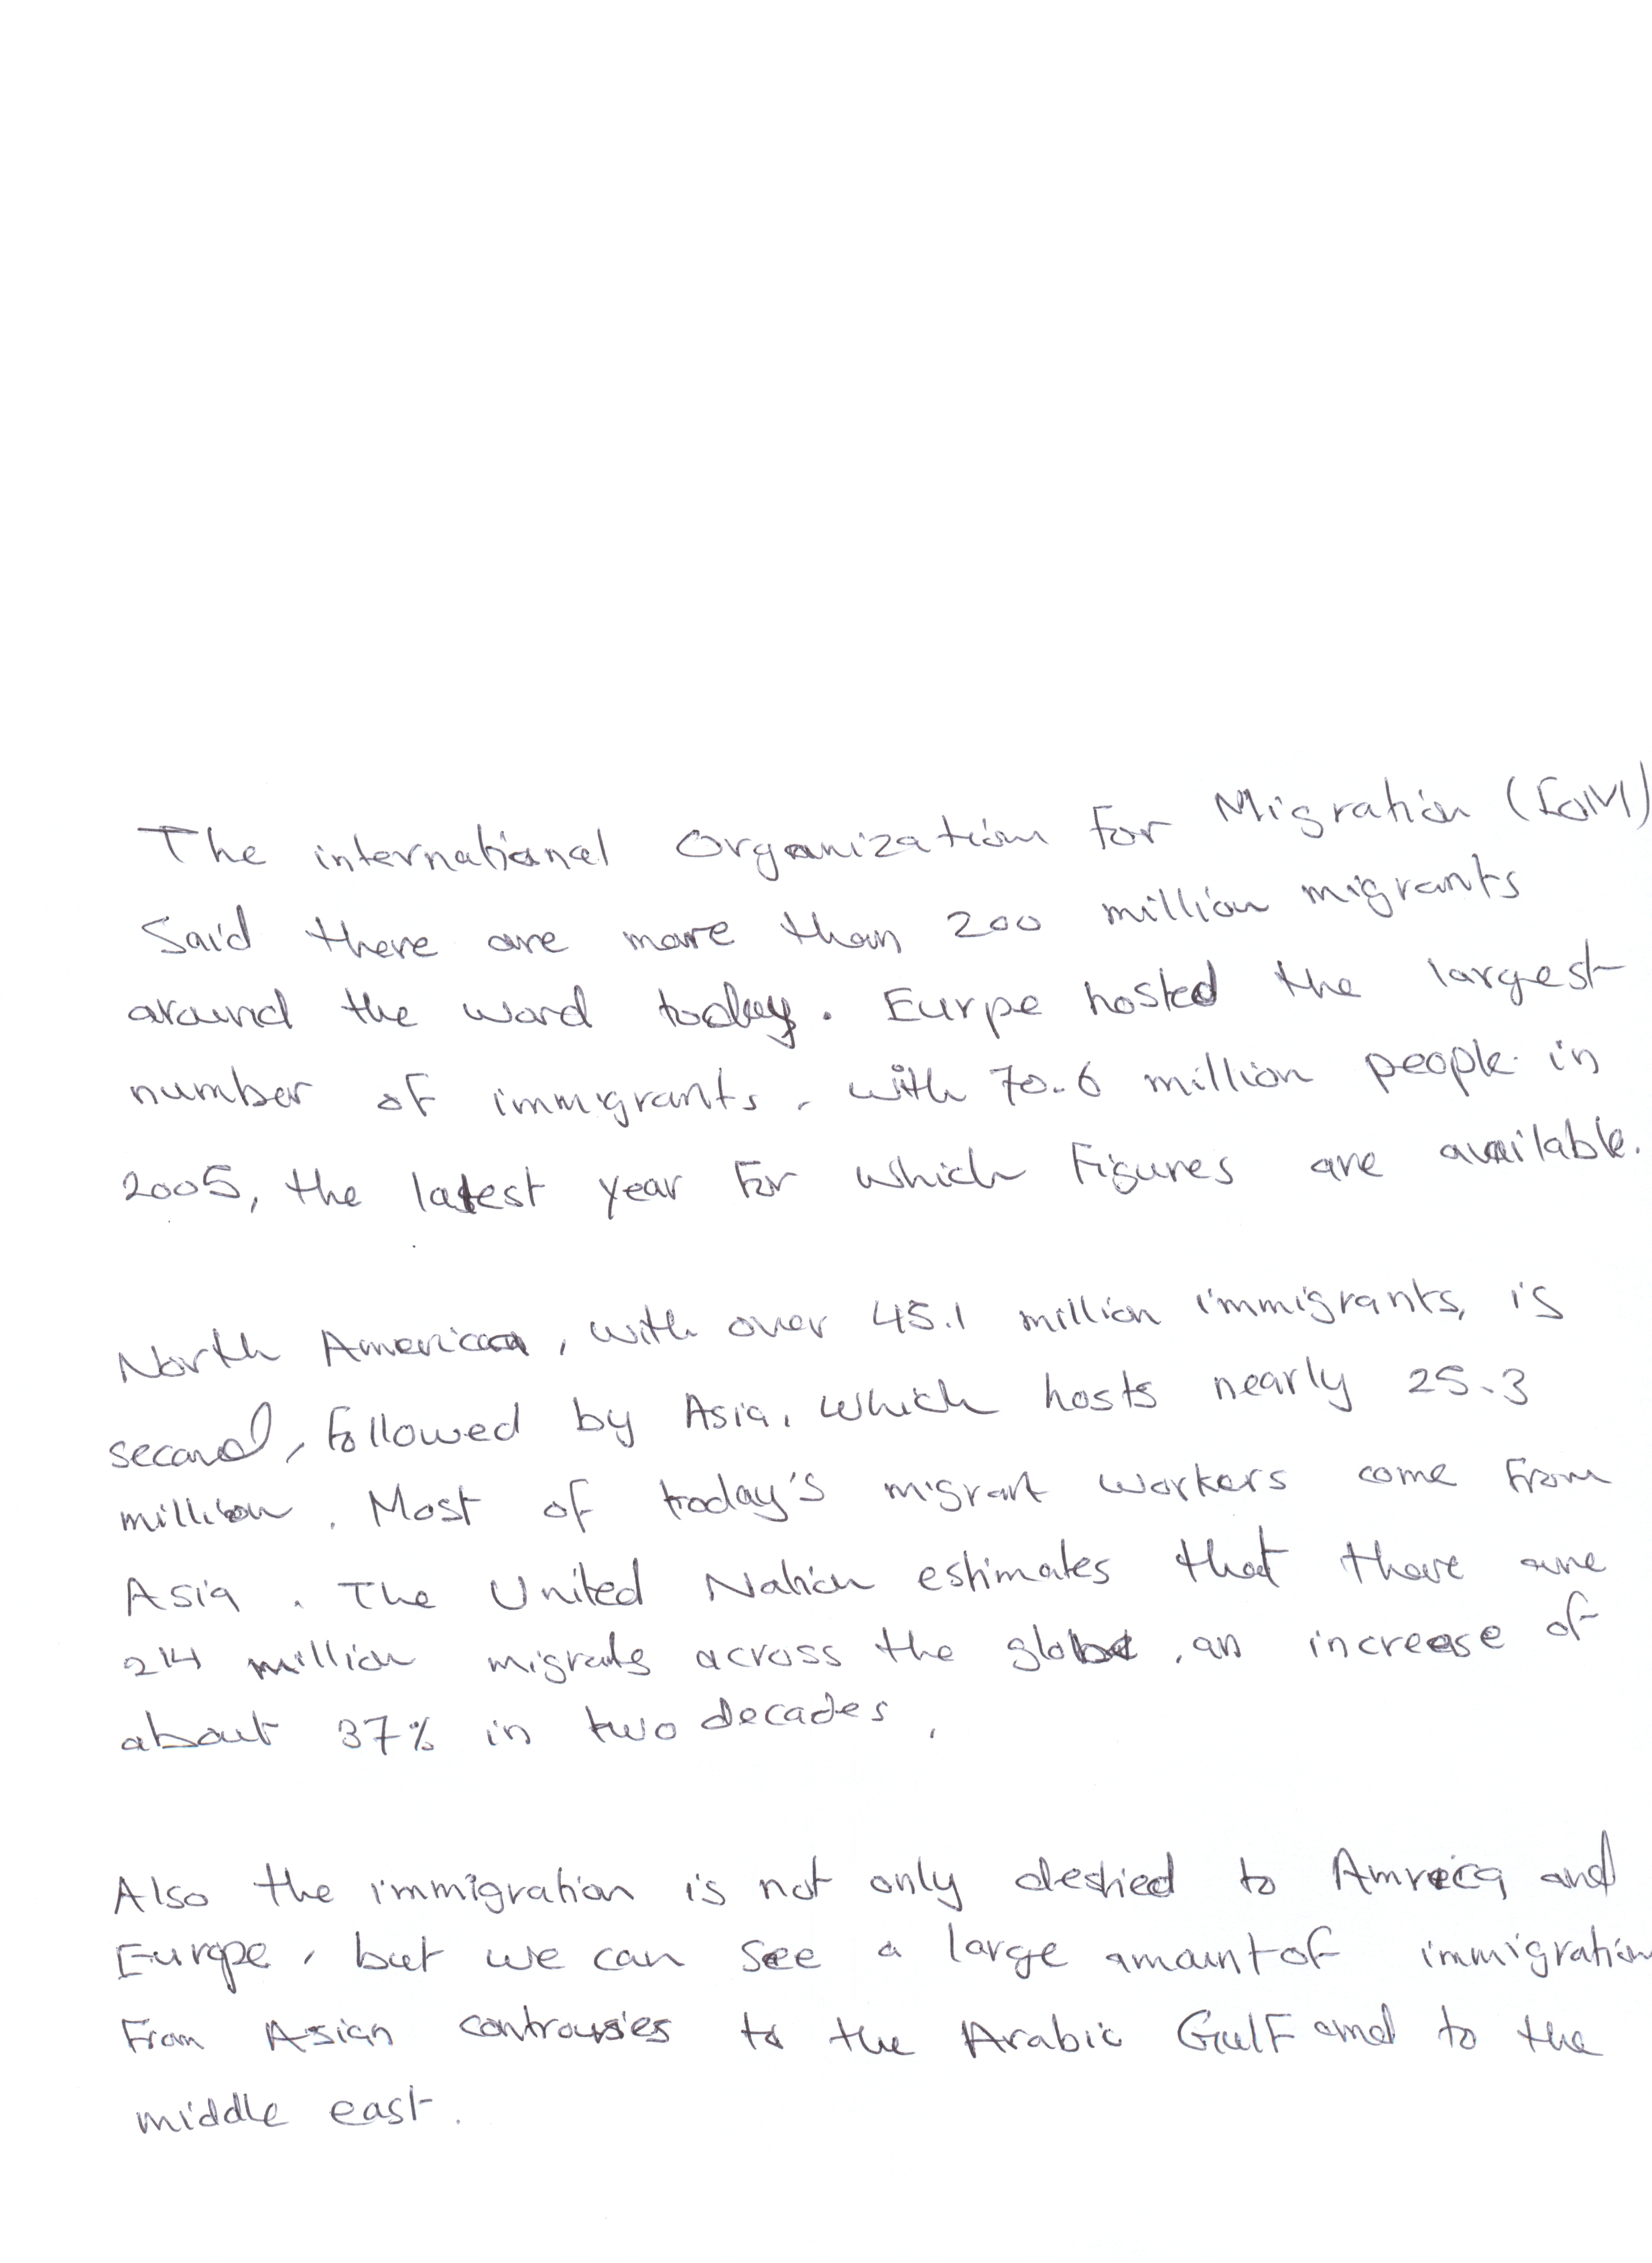 The international Organization for Migration (IOM)
Said there are more than 200 million migrants
around the word today. Eurpe hosted the largest
number of immigrants, with 70.6 million people in
2005, the latest year for which figures are available.
North American, with over 45.1 million immigrants, is
second, followed by Asia, which hosts nearly 25.3
million. Most of today's migrant workers come from
Asia. The United Nation estimates that there are
214 million migrants across the globe, an increase of
about 37% in two decades.
Also the immigration is not only to Amreica and
Europe, but we can see a large amount of immigration
from Asian to the Arabic Gulf and to the
middle east.